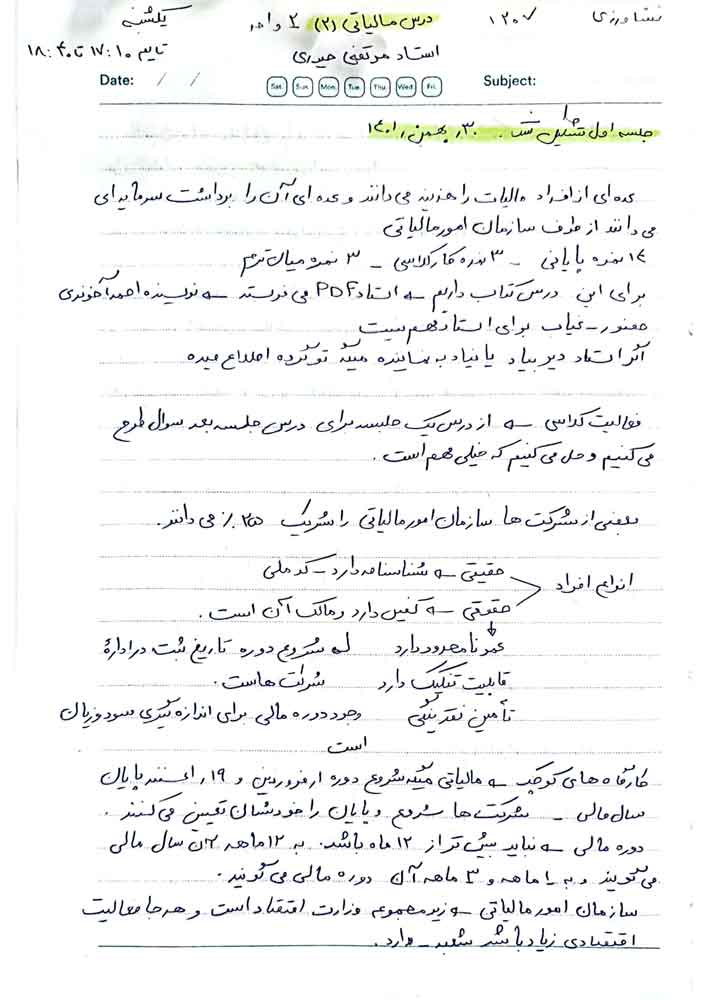 کشاورزی ۱۲۰۷ درس مالیاتی (۲) ۲ واحد یکشنبه
استاد مرتضی حیدری تایم ۱۷:۱۰ تا ۱۸:۴۰
Date: / / Sat Sun Mon Tue Thu Wed Fri Subject:
جلسه اول تشکیل شد . ۳۰, بهمن, ۱۴۰۱
عده ای از افراد مالیات را هزینه می دانند و عده ای آن را برداشت سرمایه ای
می دانند از طرف سازمان امور مالیاتی
۱۴ نمره پایانی - ۳ نمره کار کلاسی - ۳ نمره میان ترم
برای این درس کتاب داریم ← استاد PDF می فرستد ← نویسنده احمد آخوندی
حضور - غیاب برای استاد مهم نیست
اگر استاد دیر بیاد یا نیاد به نماینده میگه تو گروه اطلاع میده
فعالیت کلاسی ← از درس یک جلسه برای درس جلسه بعد سوال طرح
می کنیم و حل می کنیم که خیلی مهم است .
بعضی از شرکت ها سازمان امور مالیاتی را شریک ۲۵٪ می دانند .
انواع افراد
حقیقی ← شناسنامه دارد - کد ملی
حقوقی ← کفیل دارد و مالک آن است .
عمر نامحدود دارد ← شروع دوره تاریخ ثبت در ادارۀ
قابلیت تفکیک دارد شرکت هاست .
تأمین نقدینگی وجود دوره مالی برای اندازه گیری سود و زیان
است
کارگاه های کوچک ← مالیاتی میگه شروع دوره از فروردین و ۱۹, اسفند پایان
سال مالی - شرکت ها شروع و پایان را خودشان تعیین می کنند .
دوره مالی ← نباید بیش تر از ۱۲ ماه باشد . به ۱۲ ماهه آن سال مالی
می گویند و به ۶ ماهه و ۳ ماهه آن دوره مالی می گویند .
سازمان امور مالیاتی ← زیرمجموعه وزارت اقتصاد است و هرجا فعالیت
اقتصادی زیاد باشد شعبه دارد .